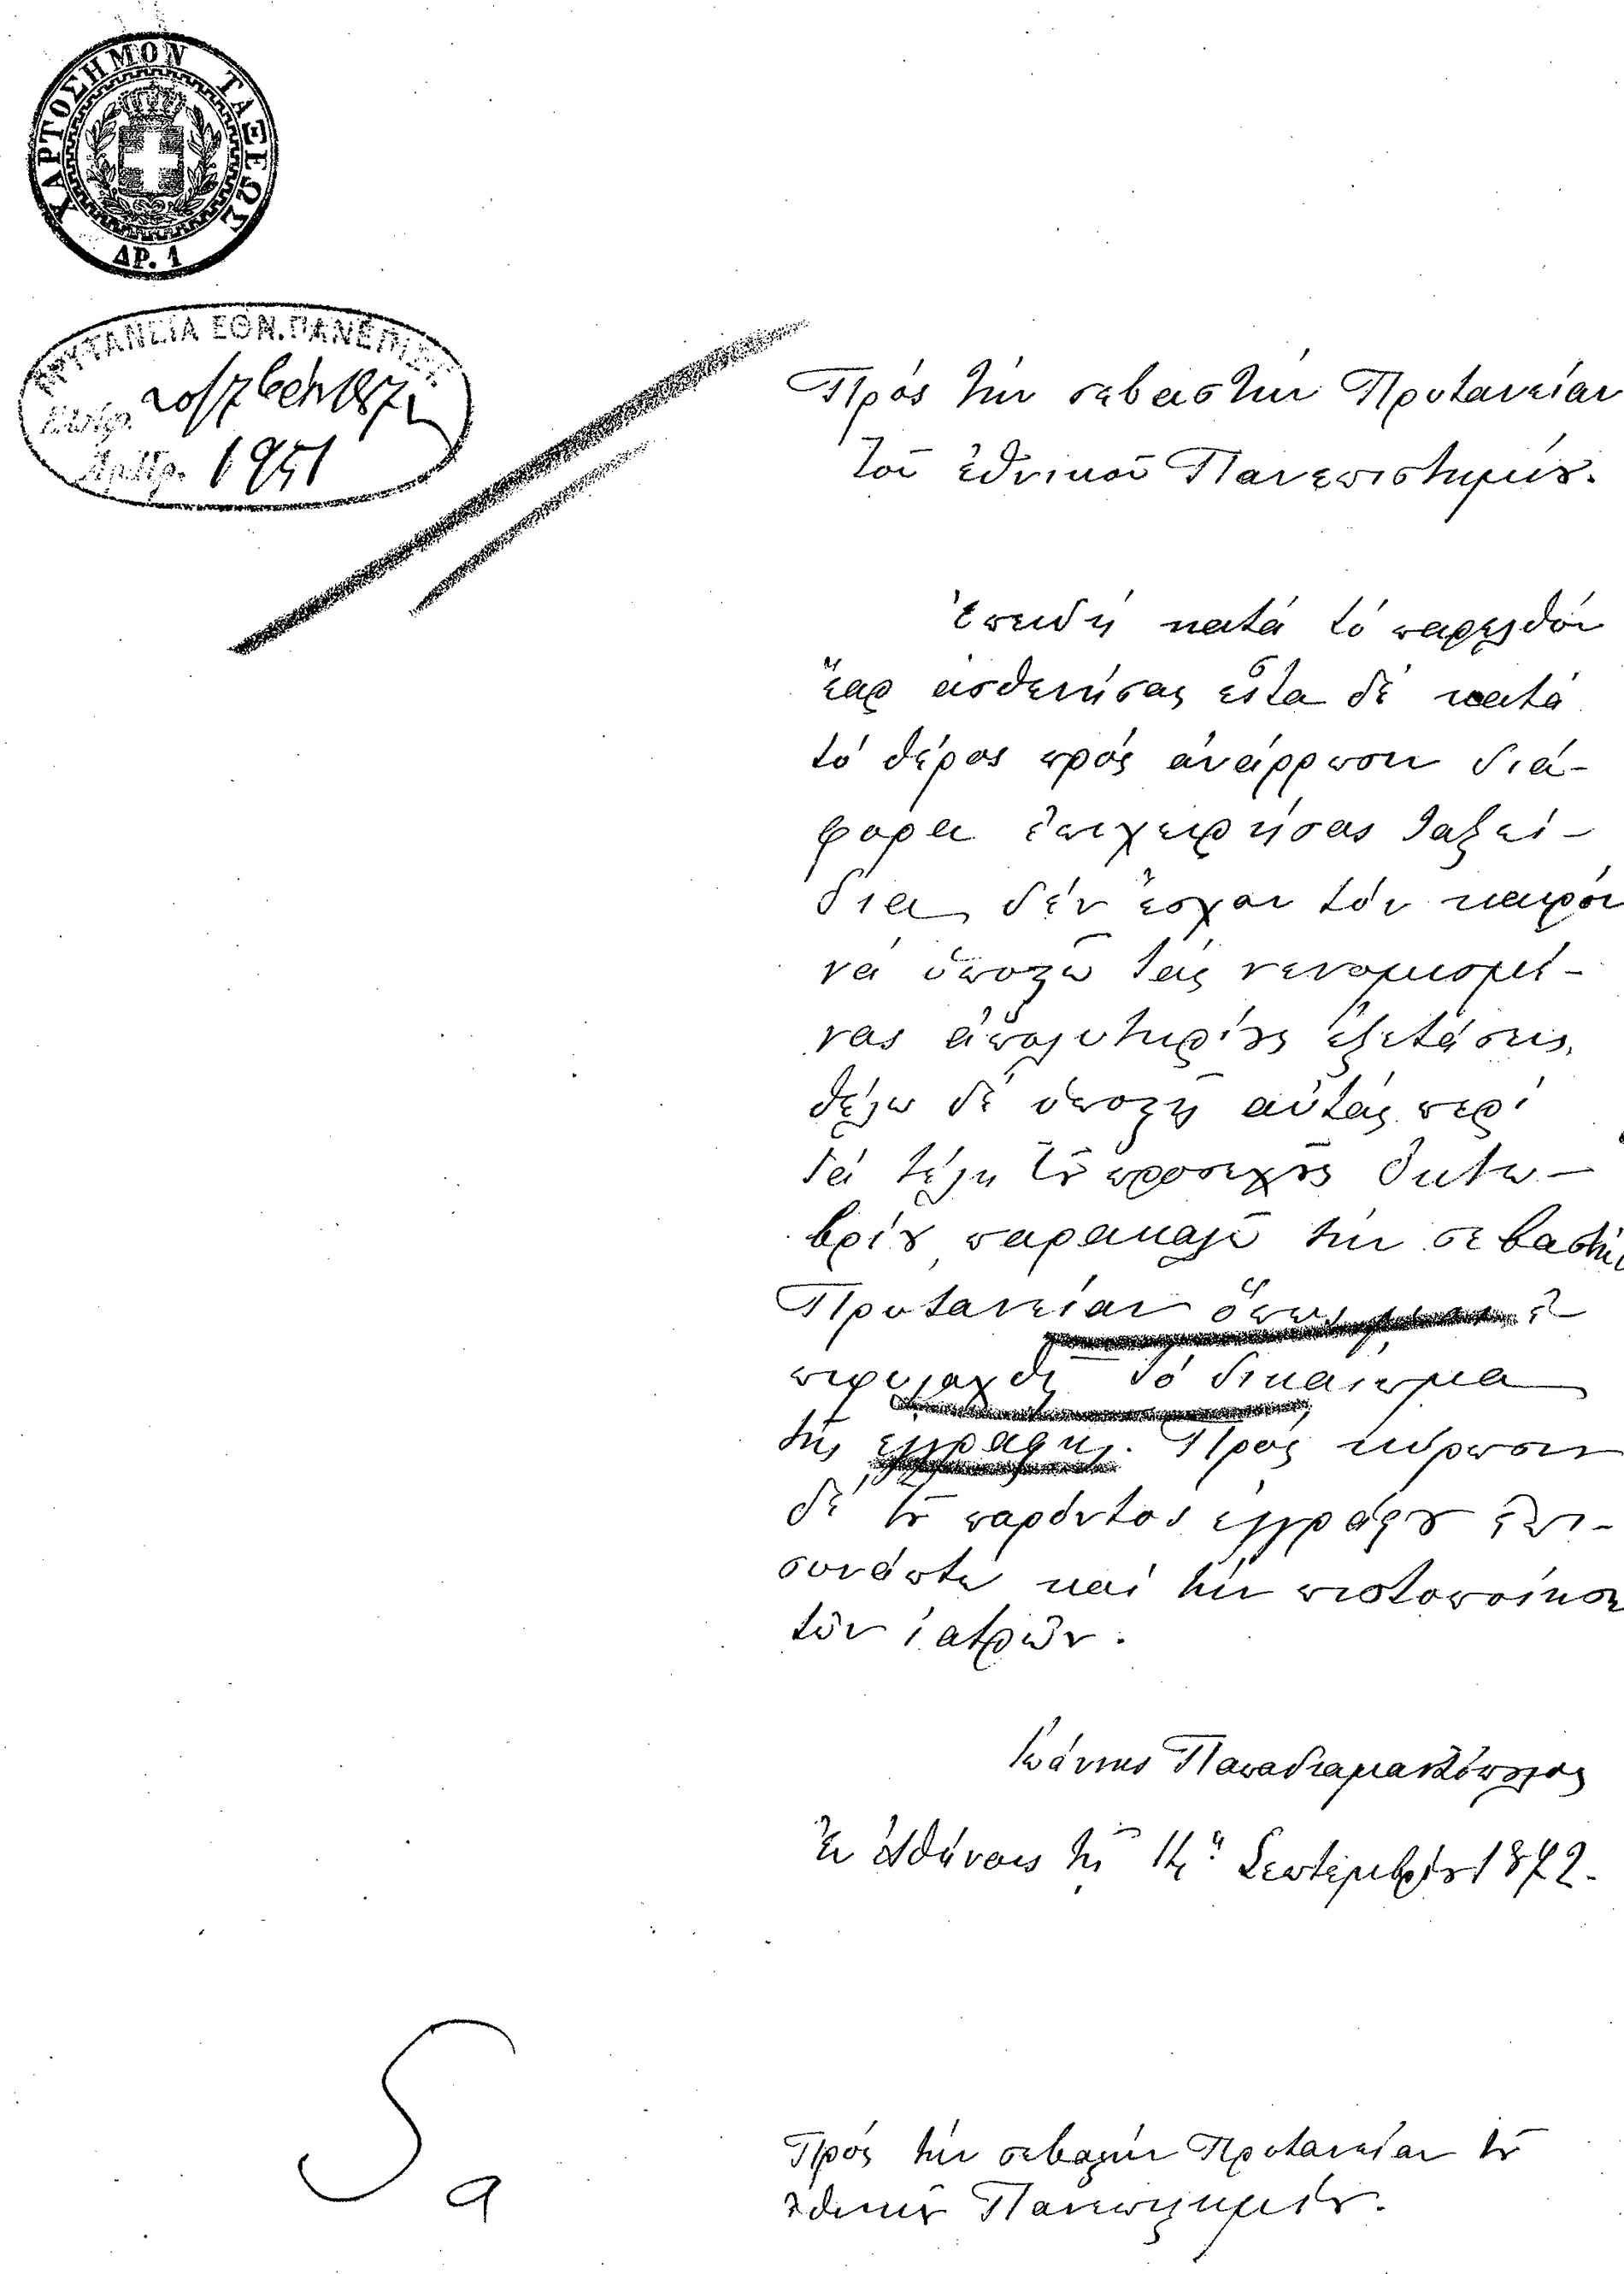 ΧΑΡΤΟΣΗΜΟΝ ΤΑΞΕΩΣ
ΔΡ. 1
ΠΡΥΤΑΝΕΙΑ ΕΘΝ. ΠΑΝΕΠΙΣΤ.
Ἀρ. Πρ. 1951
Πρός τήν σεβαστήν Πρυτανείαν
τοῦ ἐθνικοῦ Πανεπιστημίου.
Ἐπειδή κατά τό παρελθόν
ἔαρ ἀσθενήσας εἶτα δέ κατά
τό θέρος πρός ἀνάρρωσιν διά-
φορα ἐπιχειρήσας ταξεί-
δια, δέν ἔσχον τόν καιρόν
νά ὑποστῶ τάς νενομισμέ-
νας ἀπολυτηρίους ἐξετάσεις,
θέλω δέ ὑποστῇ αὐτάς περί
τά τέλη τοῦ προσεχοῦς Ὀκτω-
βρίου, παρακαλῶ τήν σεβαστήν
Πρυτανείαν ὅπως μοι ἐ
πιφυλαχθῇ τό δικαίωμα
τῆς ἐγγραφῆς. Πρός κύρωσιν
δέ τοῦ παρόντος ἐγγράφου ἐπι-
συνάπτω καί τήν πιστοποίησιν
τῶν ἰατρῶν.
Ἰωάννης Παπαδιαμαντόπουλος
Ἐν Ἀθήναις τῇ Σεπτεμβρίου 1872.
Πρός τήν σεβαστήν Πρυτανείαν τοῦ
ἐθνικοῦ Πανεπιστημίου.